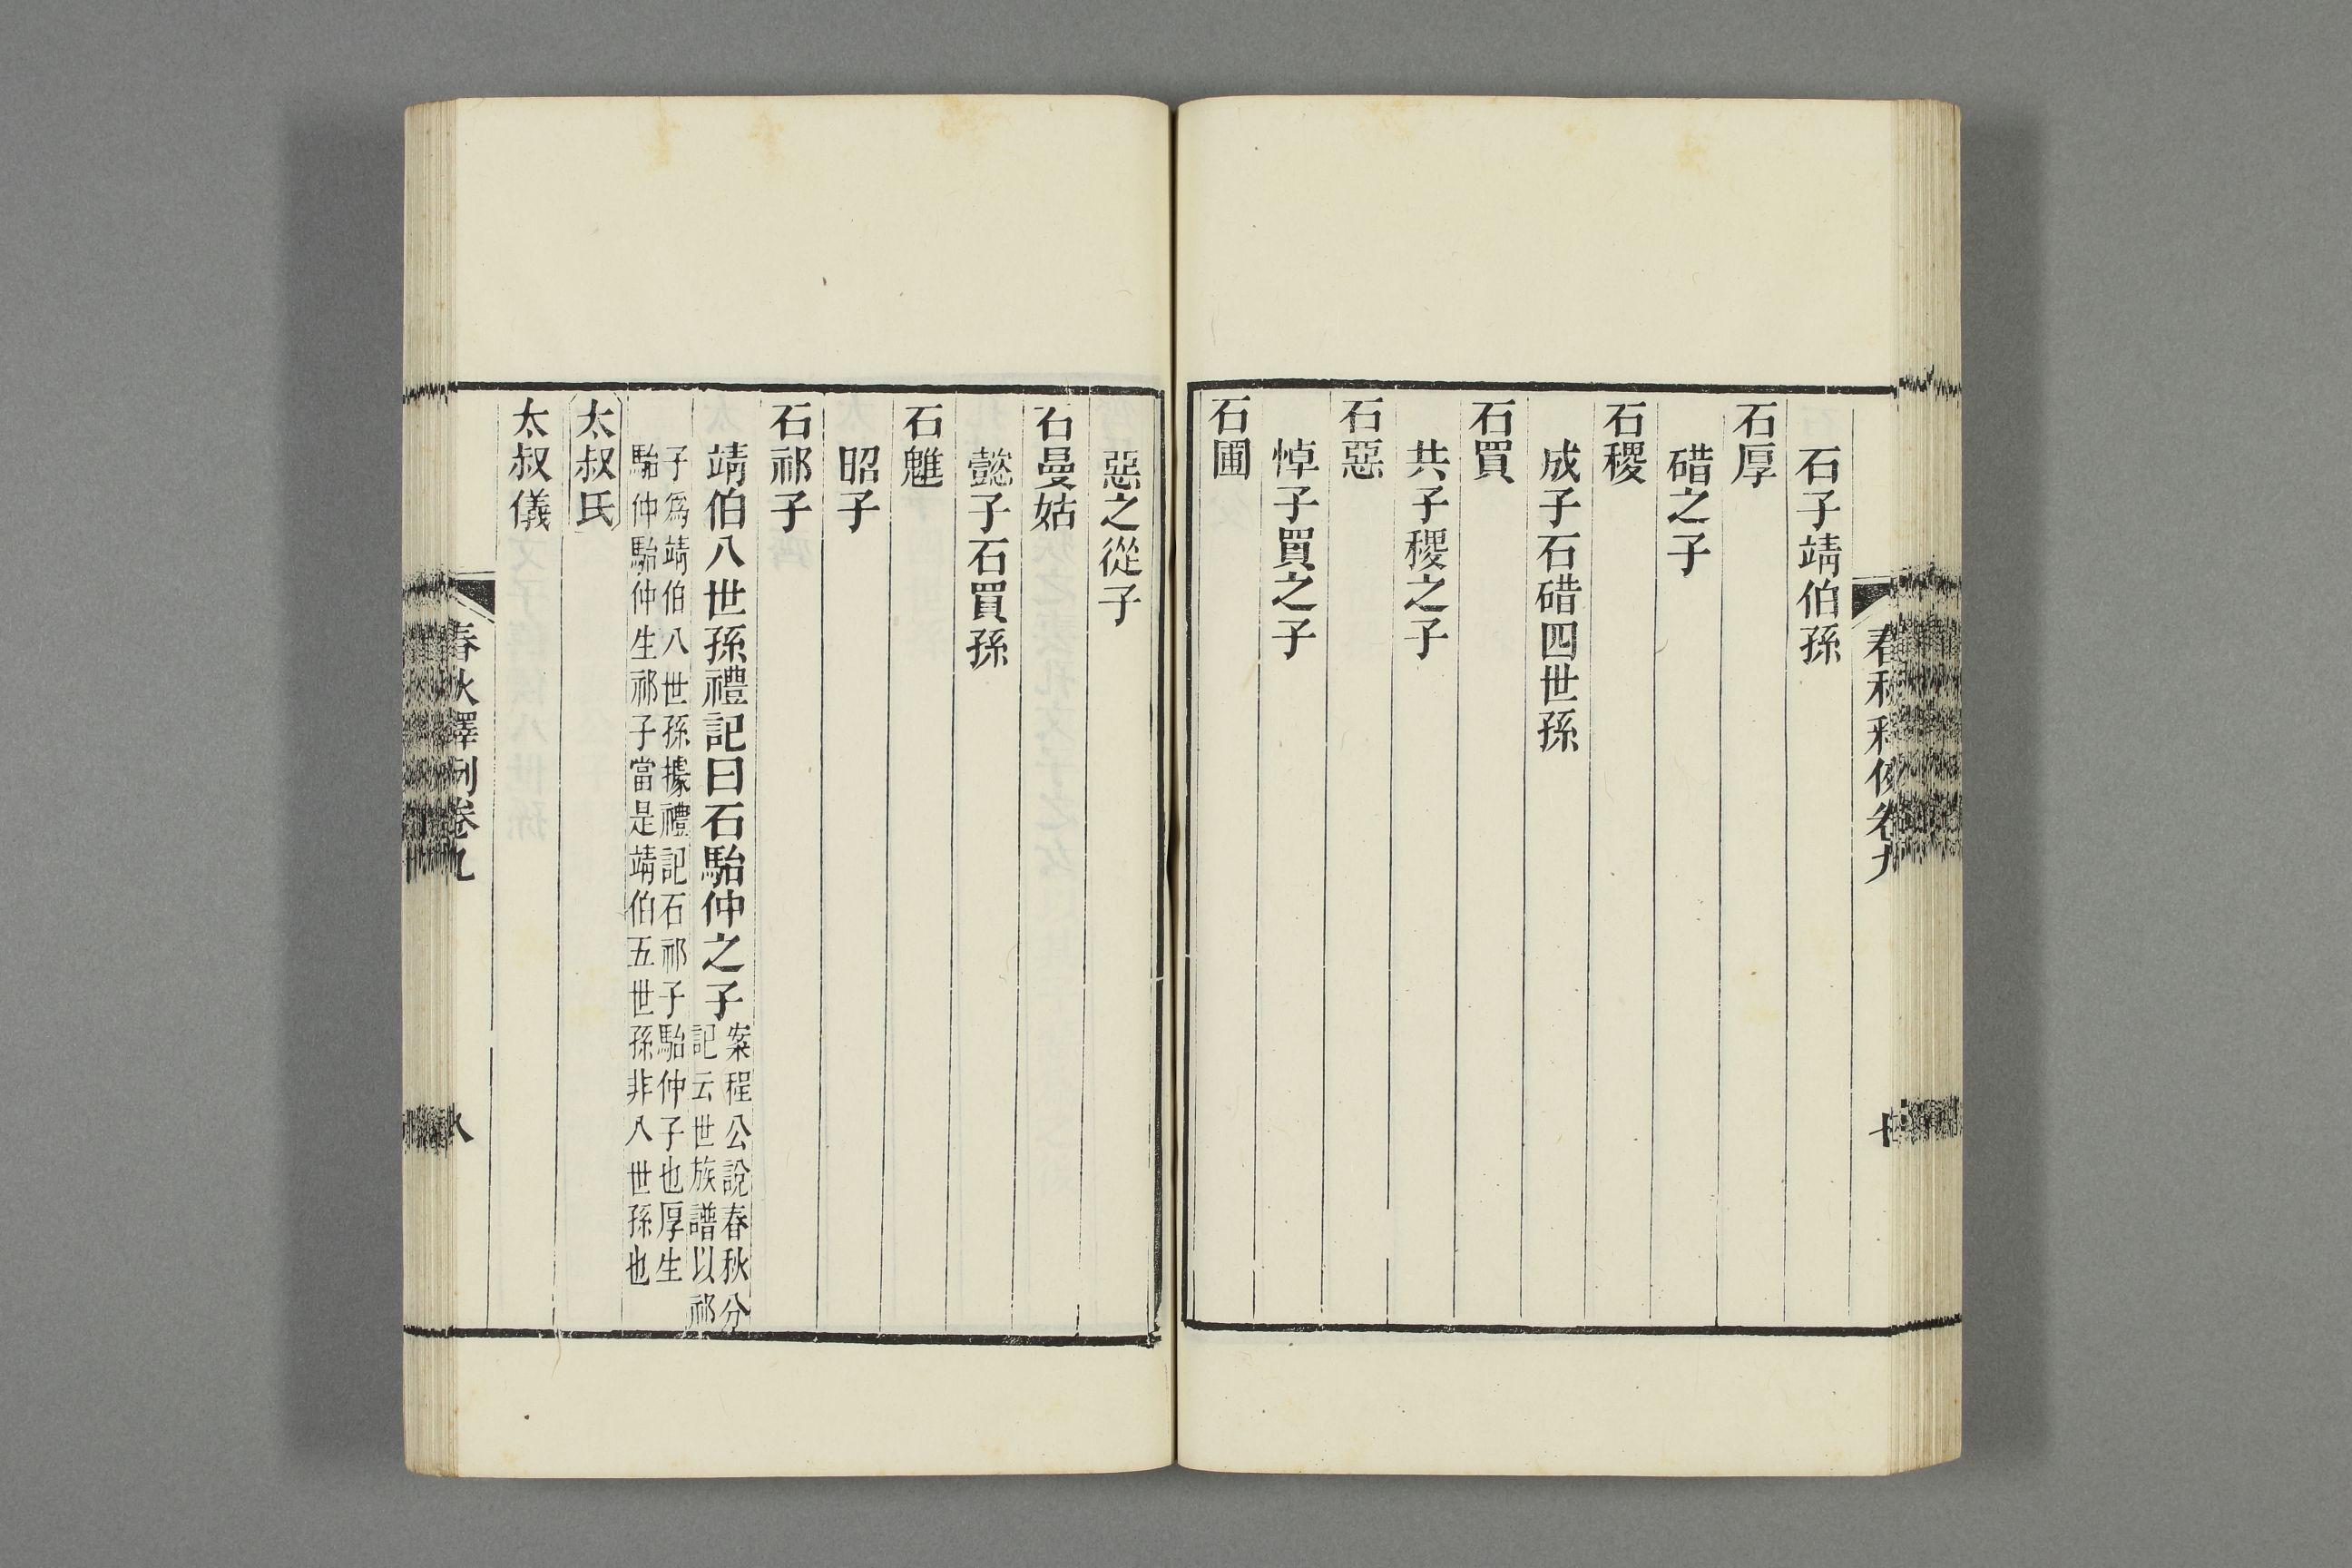 春秋釋例卷九
石子靖伯孫
石厚
碏之子
石稷
成子石碏四世孫
石買
共子稷之子
石惡
悼子買之子
石圃
惡之從子
石曼姑
懿子石買孫
石魋
昭子
石祁子
靖伯八世孫禮記曰石駘仲之子
案程公說春秋分
記云世族譜以祁
子為靖伯八世孫據禮記石祁子駘仲子也厚生
駘仲駘仲生祁子當是靖伯五世孫非八世孫也
太叔氏
太叔儀
春秋釋例卷九
八